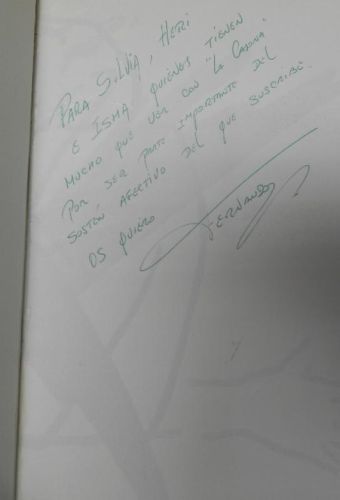 PARA SILVIA, HERI
E ISMA QUIÉNES TIENEN
MUCHO QUE VER CON "LA CASONA"
POR SER PARTE IMPORTANTE DEL
SOSTÉN AFECTIVO DEL QUE SUSCRIBE.
OS QUIERO
FERNANDO